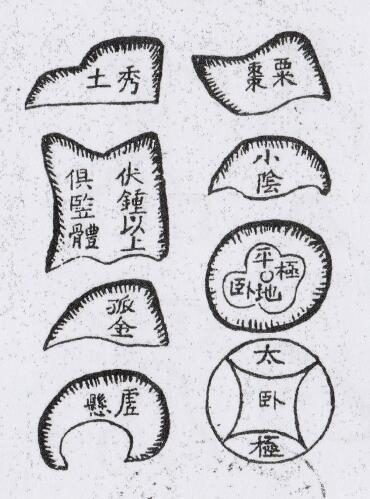 粟
棗
小
陰
極
平地
卧
太
卧
極
秀土
伏鍾以上
俱竪體
孤金
虛懸